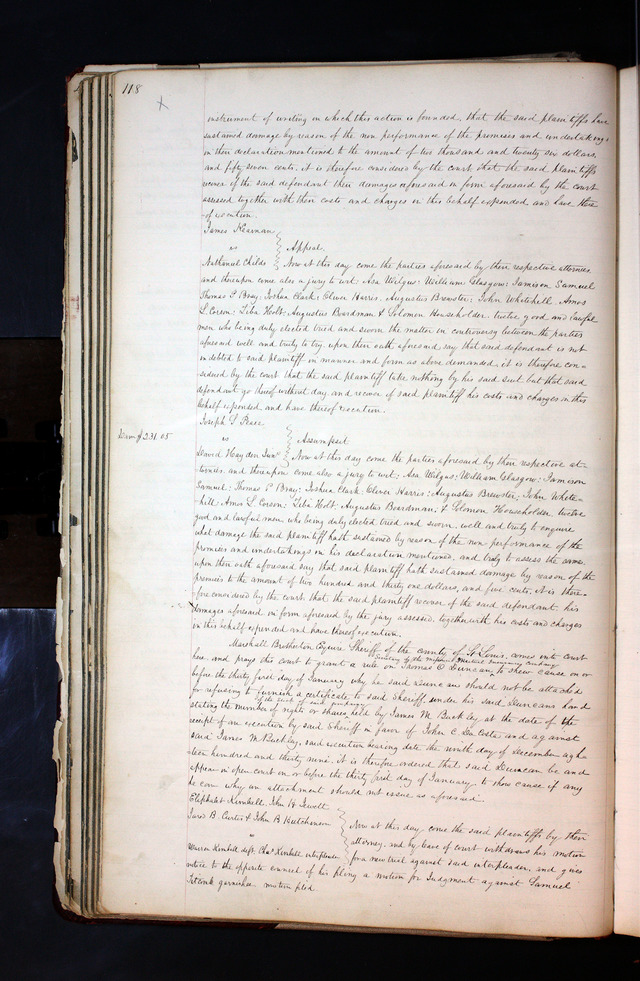 118
instrument of writing on which this action is founded, that the said plaintiffs have
sustained damage by reason of the non performance of the promises and undertakings
in their declaration mentioned to the amount of two thousand and twenty six dollars,
and fifty seven cents, it is therefore considered by the court that the said Plaintiffs
recover of the said defendant their damages aforesaid in form aforesaid by the court
assessed together with their costs and charges in this behalf expended and have there
of execution.
James Kearnan
vs } Appeal
Nathaniel Childs } Now at this day come the parties aforesaid by their respective attornies
and thereupon come also a jury to wit: Asa Wilgus; William Glasgow; Jamison Samuel
Thomas E Bray; Joshua Clark; Oliver Harris; Augustus Brewster; John Whitehill Amos
L. Corson; Liba Holt; Augustus Boardman & Solomon Householder twelve good and lawful
men who being duly elected tried and sworn the matter in controversy between the parties
aforesaid well and truly to try, upon their oath aforesaid, say that said defendant is not
indebted to said plaintiff in manner and form as above demanded, it is therefore con-
sidered by the court that the said plaintiff take nothing by his said suit but that said
defendant go thereof without day and recover of said plaintiff his costs and charges in this
behalf expended, and have thereof execution.
Joseph G Pease
vs } Assumpsit
Dam $231.05
David Hayden Junr } Now at this day come the parties aforesaid by their respective at-
tornies and thereupon come also a jury to wit; Asa Wilgus; William Glasgow; Jamison
Samuel; Thomas E Bray; Joshua Clark; Oliver Harris; Augustus Brewster; John White-
hill; Amos L. Corson; Liba Holt; Augustus Boardman; & Solomon Householder twelve
good and lawful men who being duly elected tried and sworn, well and truly to enquire
what damage the said plaintiff hath sustained by reason of the non performance of the
promises and undertakings in his declaration mentioned, and truly to assess the same,
upon their oath aforesaid say that said plaintiff hath sustained damage by reason of the
premises to the amount of two hundred and thirty one dollars, and five cents, it is there-
fore considered by the court that the said plaintiff recover of the said defendant his
damages aforesaid in form aforesaid by the jury assessed, together with his costs and charges
in this behalf expended and have thereof execution.
Marshall Brotherton Esquire Sheriff of the county of St Louis, comes into court
here, and prays this court to grant a rule on Thomas O Duncan, to shew cause on or
before the thirty first day of January why he said Duncan should not be attached
for refusing to furnish a certificate to said Sheriff, under his said Duncans hand
stating the number of rights or shares held by James M. Buckley at the date of the
receipt of an execution by said Sheriff in favor of John C DaCosta and against
said James M Buckley, said execution bearing date the ninth day of December eigh-
teen hundred and thirty nine. it is therefore ordered that said Duncan be and
appear in open court on or before the thirty first day of January, to show cause if any
he can why an attachment should not issue as aforesaid.
Eliphalet Kimball, John H Jewell
James B. Curtis & John B Hutchinson } Now at this day, come the said plaintiffs by their
vs } attorney, and by leave of court withdraws his motion
Warren Kimball deft. Chas Kimball interpleader } for a new trial against said interpleader, and gives
notice to the opposite counsel of his filing a motion for Judgment against Samuel
garnishee. motion filed.